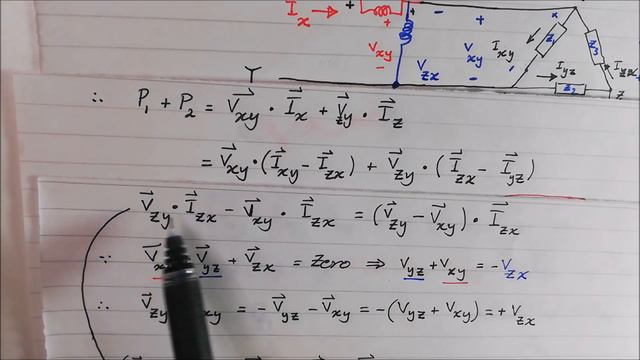 I⃗x → + + - +
Vxy Vzx Vxy Ixy Z1 Z3
- - Iyz Izx
Y Z2 Z
∴ P1 + P2 = V⃗xy · I⃗x + V⃗zy · I⃗z
= V⃗xy · (I⃗xy − I⃗zx) + V⃗zy · (I⃗zx − I⃗yz)
V⃗zy · I⃗zx − V⃗xy · I⃗zx = (V⃗zy − V⃗xy) · I⃗zx
∵ V⃗x V⃗yz + V⃗zx = Zero ⇒ Vyz + Vxy = −Vzx
∴ V⃗zy xy = −V⃗yz − V⃗xy = −(Vyz + Vxy) = +Vzx